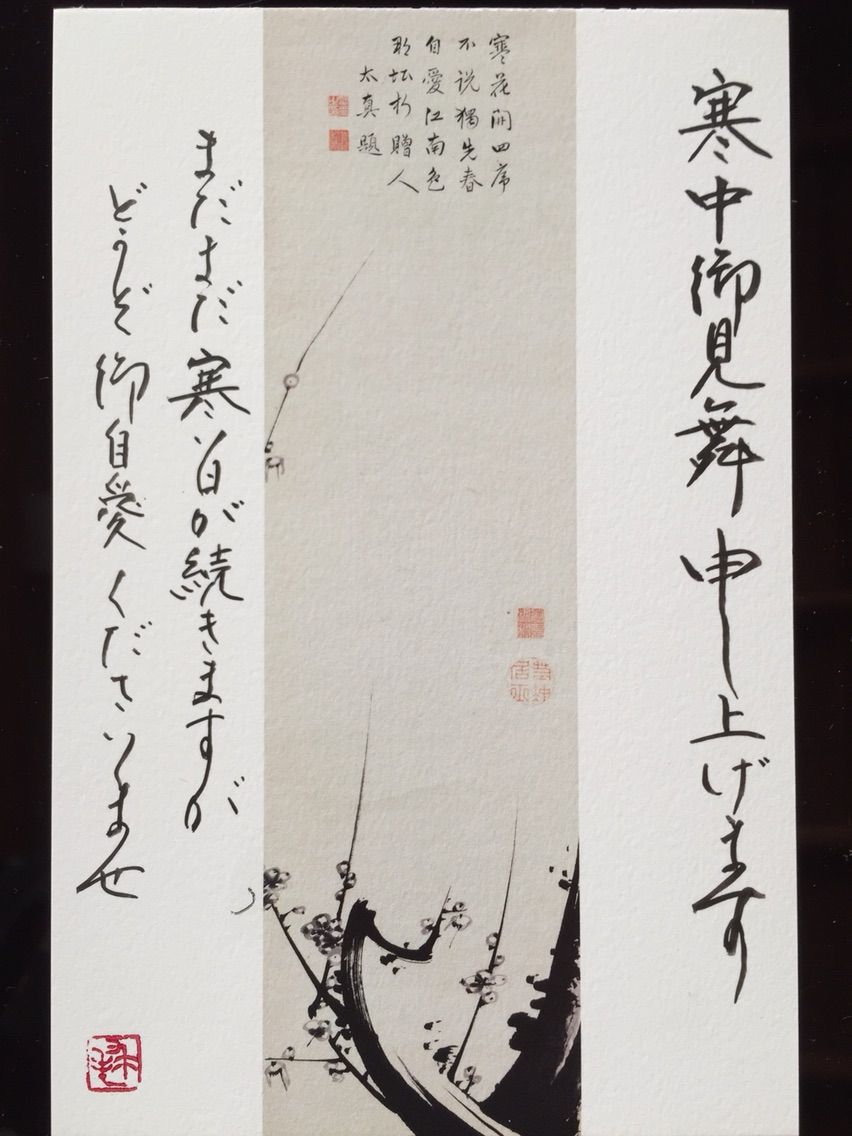 寒中御見舞申し上げます
寒花開四席
不说獨先春
自愛江南色
折贈人
太真題
まだまだ寒い日が続きますが、
どうぞ御自愛くださいませ